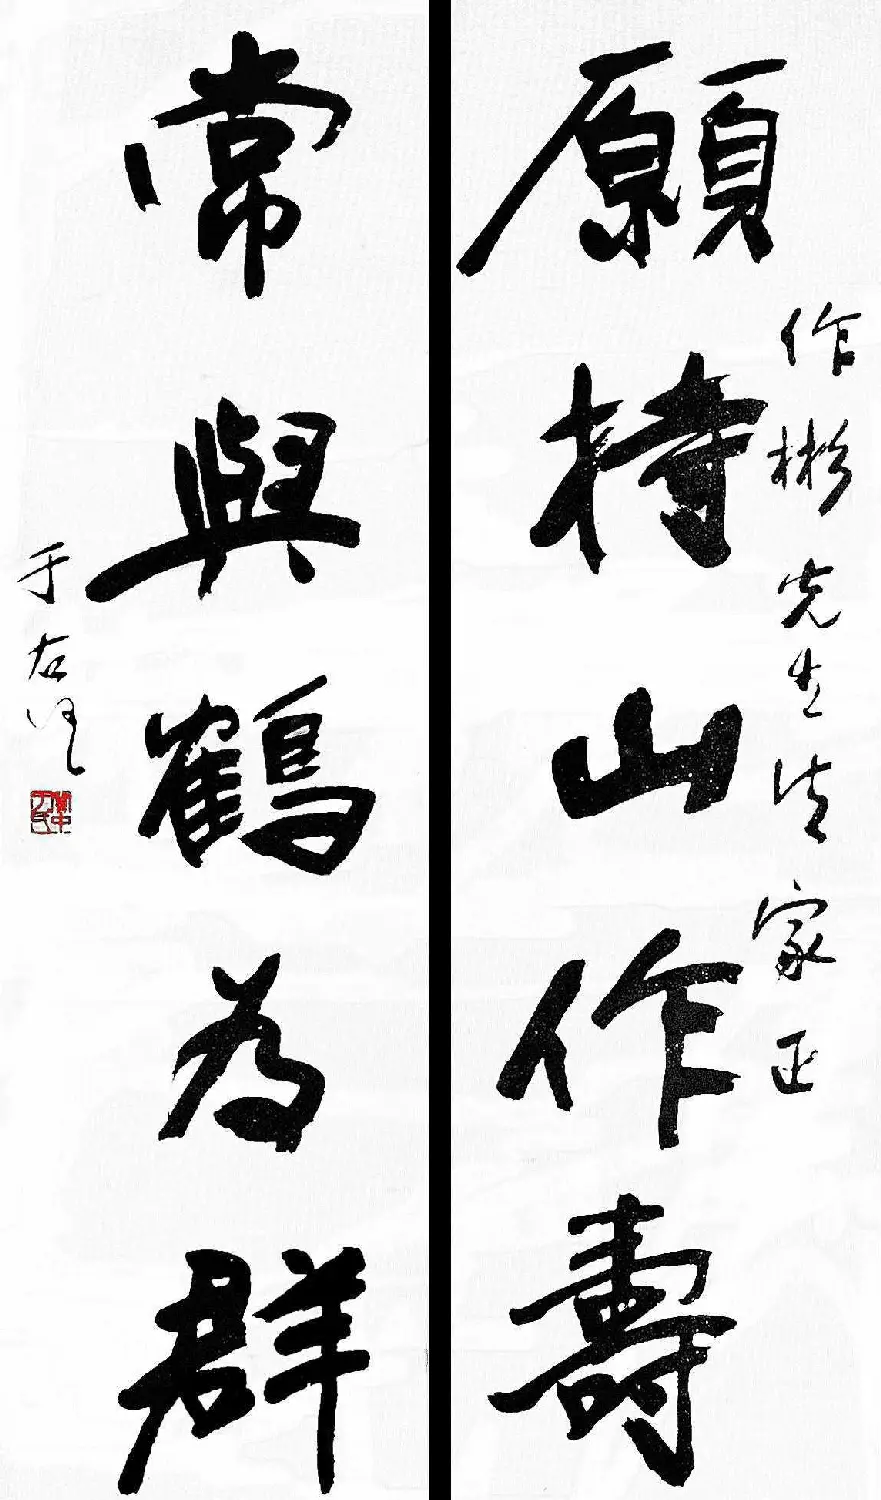 作彬先生法家正
願持山作壽
常與鶴為群
于右任
關中于氏